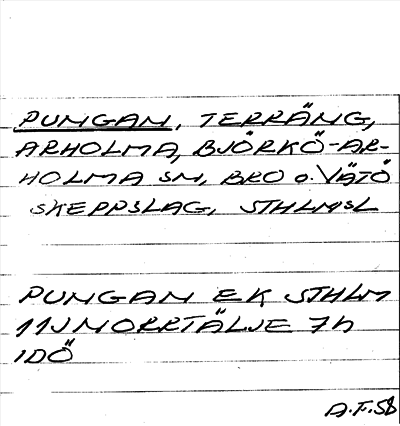 PUMGAN, TERRÄNG,
ARHOLMA, BJÖRKÖ-AR-
HOLMA SN, BRO o. VÄTÖ
SKEPPSLAG, STHLMSL
PUMGAN EK STHLM
11J NORRTÄLJE 7h
IDÖ
A.F. 58